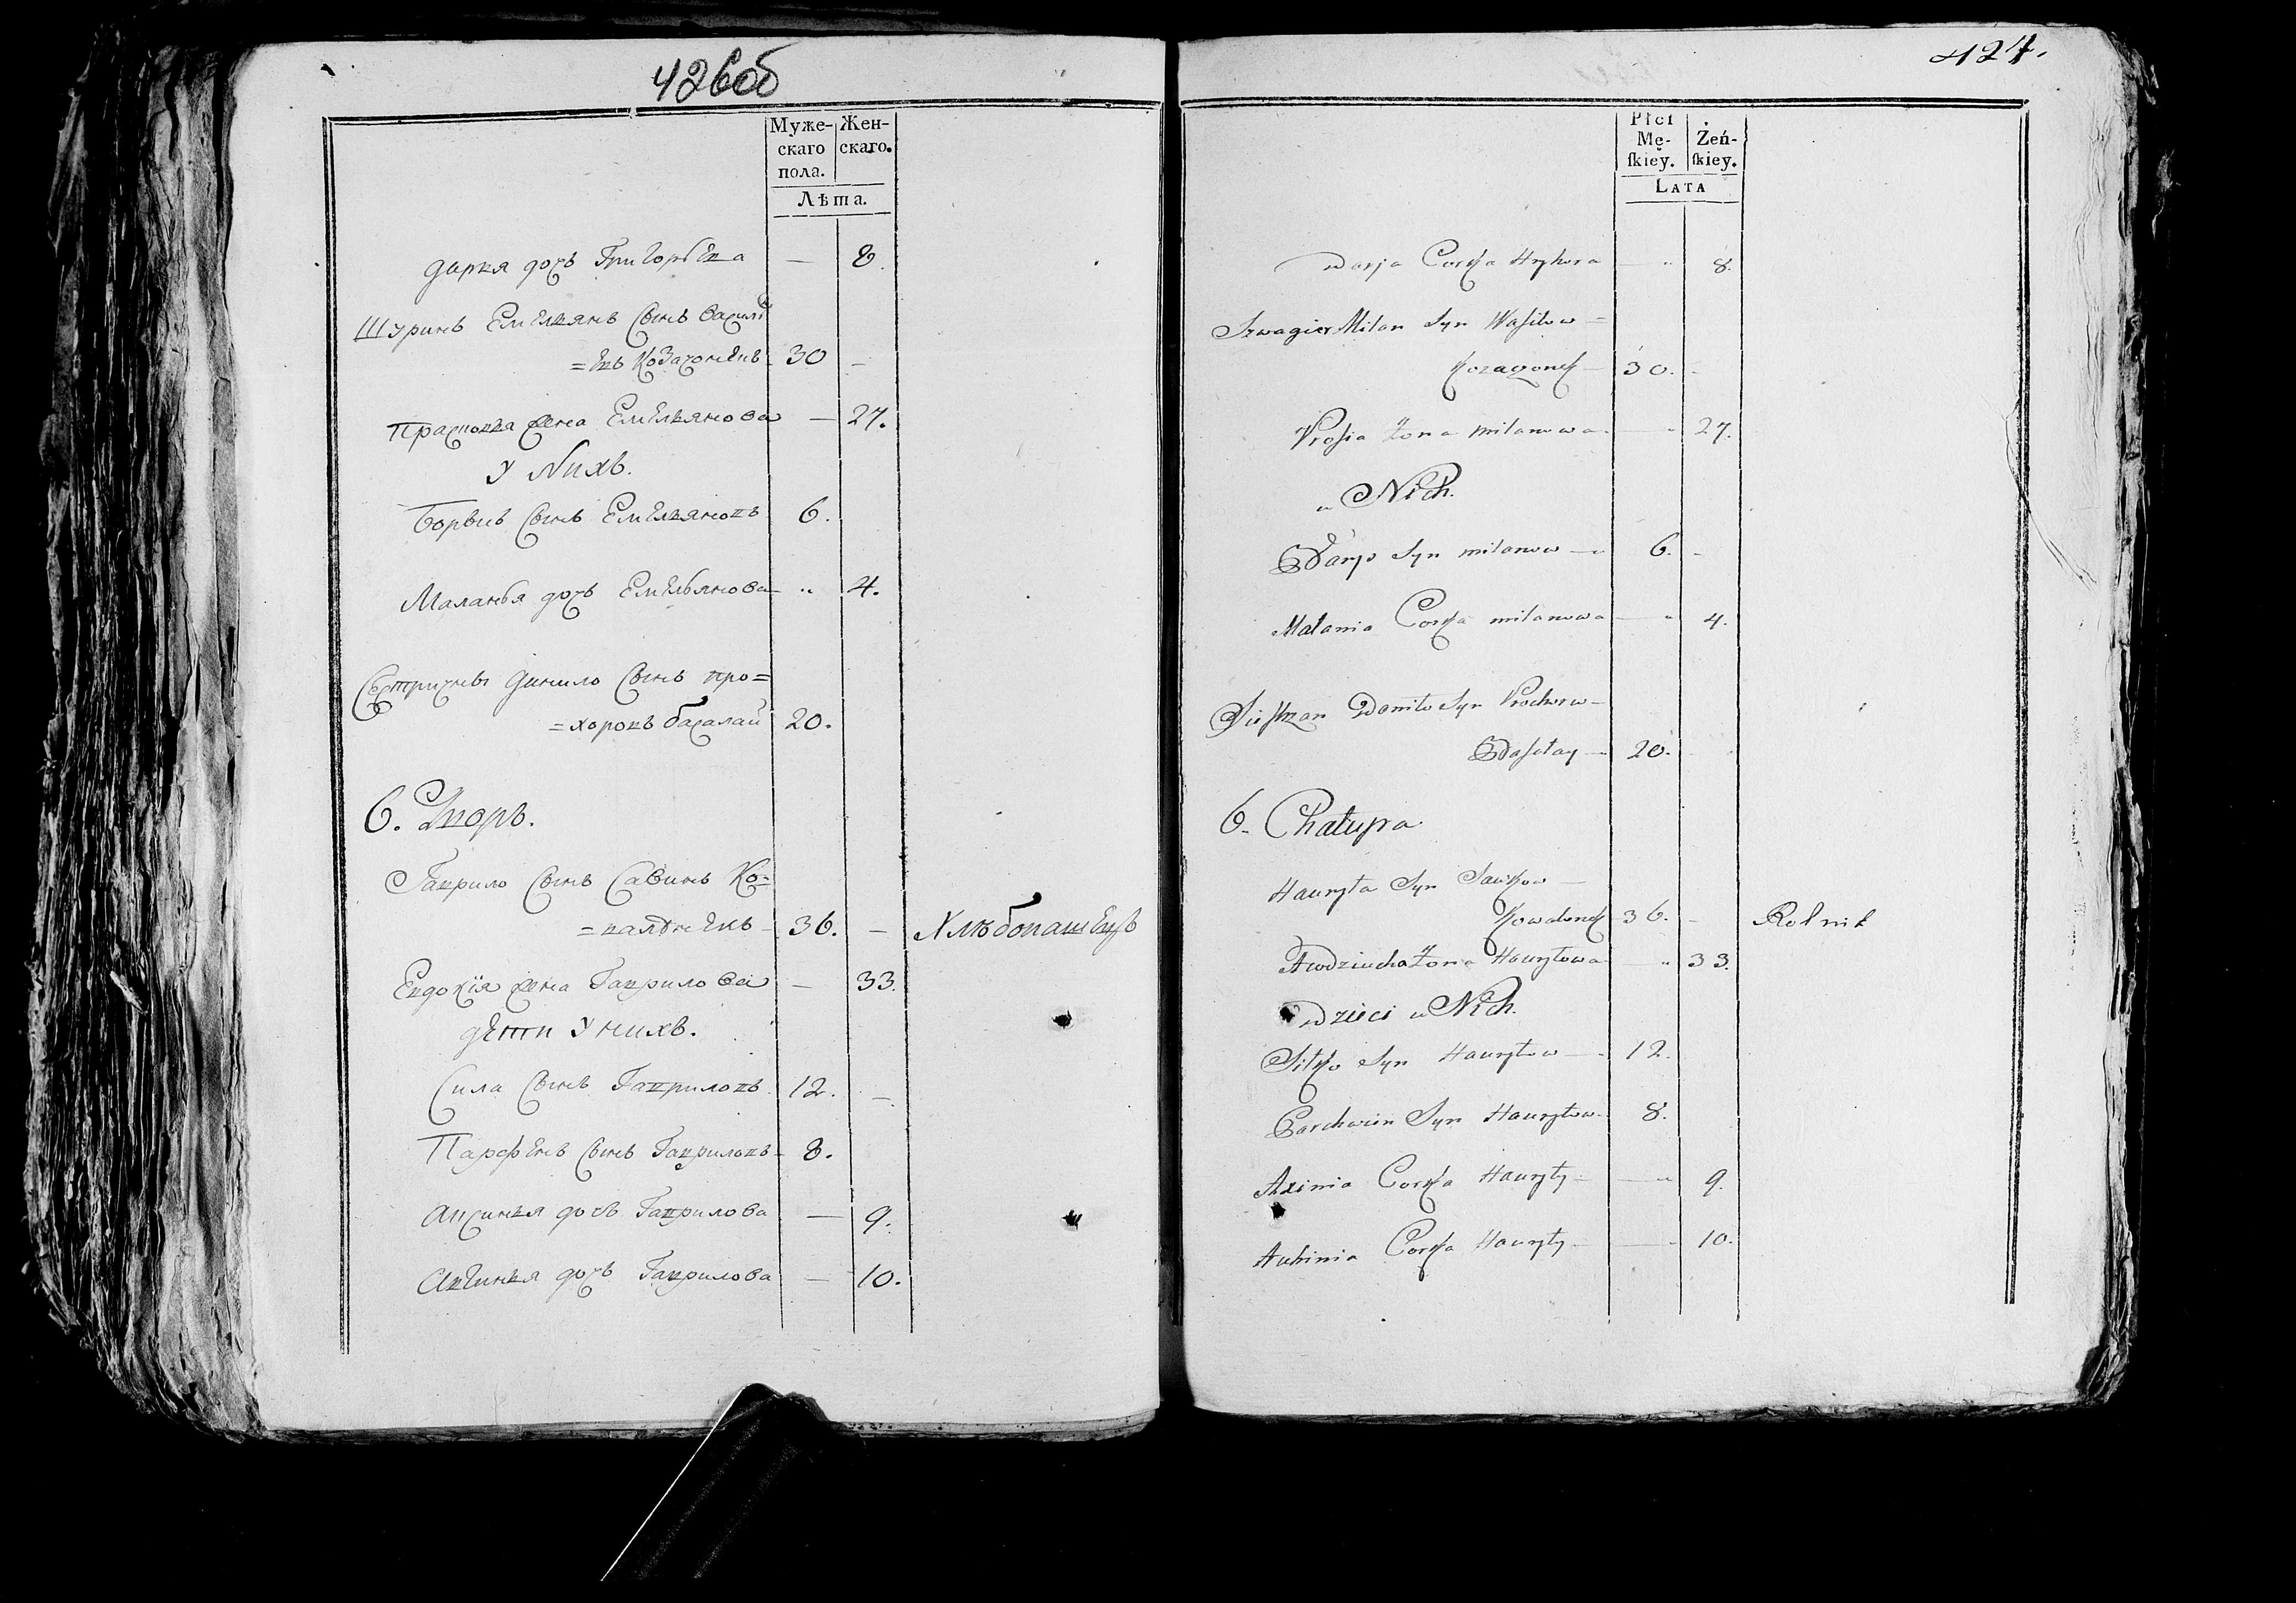 426об
Муже- Жен-
скаго скаго.
пола.
Лѣта.
Дарья дочь Григорьева — 8.
Шуринъ Емельянъ Сынъ Васильъ
=евъ Козачонекъ 30 —
Прасковья жена Емельянова — 27.
У Нихъ.
Борысъ Сынъ Емельяновъ 6.
Маланья дочь Емельянова „ 4.
Данило Сынъ про=
=хоровъ Басалай 20.
6. Дворъ.
Гаврило Сынъ Савинъ Ко=
=валенекъ 36. — Хлѣбопашецъ
Евдокія жена Гаврилова — 33.
дети У нихъ.
Сила Сынъ Гавриловъ 12. —
Парфенъ Сынъ Гавриловъ 8.
Аксинья дочь Гаврилова — 9.
Авгинья дочь Гаврилова — 10.
424.
Płci
Mę- Żeń-
ſkiey. ſkiey.
LATA
Darja Corka Hryhora — 8.
Szwagier Milan Syn Wasilow =
Kozaczonek — 30. -
Prosia Żona milanowa — 27.
u Nich.
Syn milanow — 6. -
Małania Corka milanowa — 4.
Daniło Syn Prochorow —
Basałay — 20.
6. Chałupa.
Hauryła Syn Sawkow —
Kowalonek 36. - Rolnik
Awdziucha Żona Hauryłowa — 33.
Dzieci u Nich.
Siłko Syn Hauryłow — 12.
Parchwien Syn Hauryłow 8.
Axinia Corka Hauryły — 9.
Auhinia Corka Hauryły — 10.